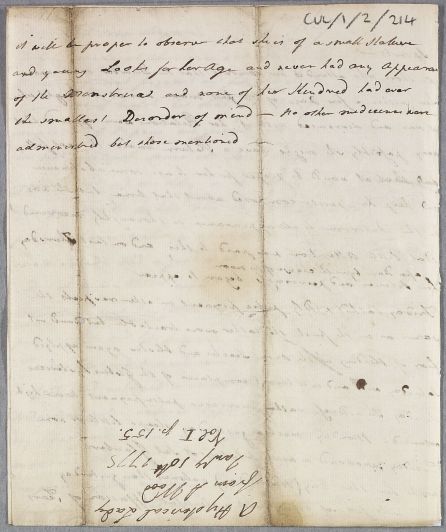 CUL/1/2/214
it will be proper to observe that she is of a small Stature
and young Looks for her Age and never had any Appearance
of the Menstrua and none of her Kindred had ever
the smallest Disorder of mind — No other medicines were
administred but those mentioned —
A Hysterical Lady
from Dr Wood
Jany 10th 1775
Vol. I. p. 155.